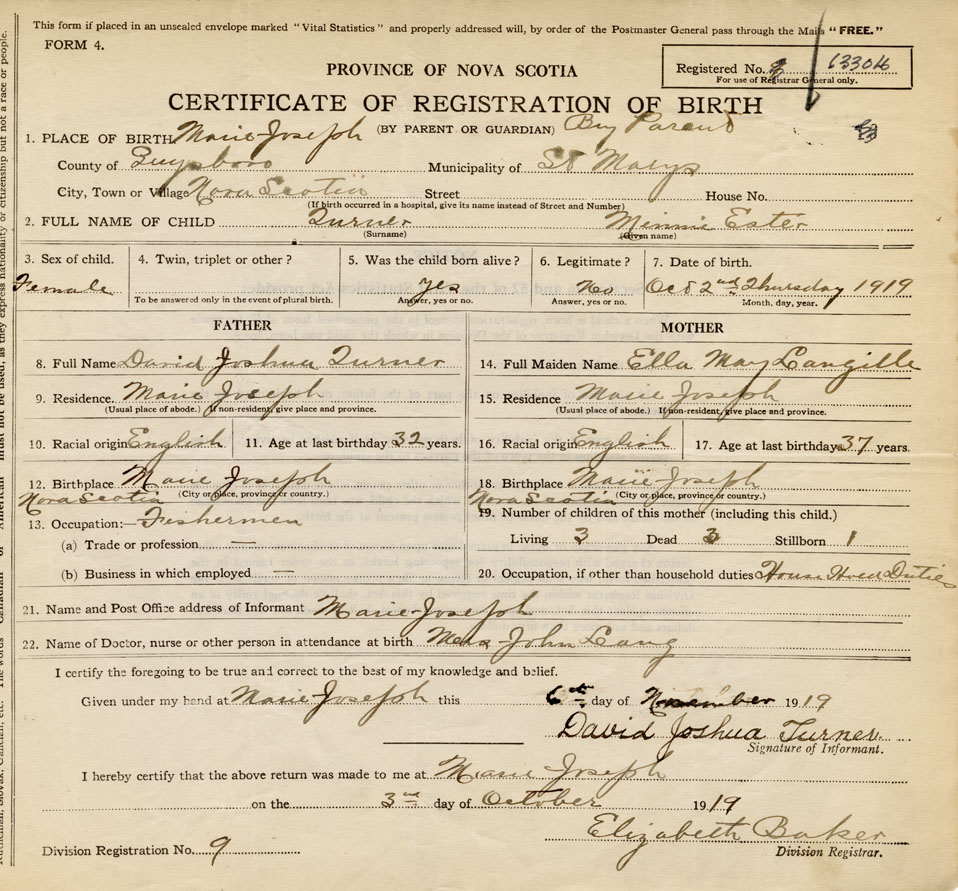 This form if placed in an unsealed envelope marked "Vital Statistics" and properly addressed will, by order of the Postmaster General pass through the Mails "FREE."
FORM 4.
PROVINCE OF NOVA SCOTIA
Registered No. 13304
For use of Registrar General only.
CERTIFICATE OF REGISTRATION OF BIRTH
(BY PARENT OR GUARDIAN) By Parent
1. PLACE OF BIRTH Marie Joseph
County of Guysboro Municipality of St Marys
City, Town or Village Nova Scotia Street House No.
(If birth occurred in a hospital, give its name instead of Street and Number)
2. FULL NAME OF CHILD Turner Minnie Ester
(Surname) (Given name)
3. Sex of child. 4. Twin, triplet or other? 5. Was the child born alive? 6. Legitimate? 7. Date of birth.
Female Yes No Oct 2nd Thursday 1919
To be answered only in the event of plural birth. Answer, yes or no. Answer, yes or no. Month, day, year.
FATHER MOTHER
8. Full Name David Joshua Turner 14. Full Maiden Name Ella May Langille
9. Residence. Marie Joseph 15. Residence Marie Joseph
(Usual place of abode.) If non-resident, give place and province. (Usual place of abode.) If non-resident, give place and province.
10. Racial origin English 11. Age at last birthday 32 years. 16. Racial origin English 17. Age at last birthday 37 years.
12. Birthplace Marie Joseph 18. Birthplace Marie Joseph
Nova Scotia (City or place, province or country.) Nova Scotia (City or place, province or country.)
13. Occupation:— Fishermen 19. Number of children of this mother (including this child.)
(a) Trade or profession — Living 3 Dead 3 Stillborn 1
(b) Business in which employed — 20. Occupation, if other than household duties House Hold Duties
21. Name and Post Office address of Informant Marie Joseph
22. Name of Doctor, nurse or other person in attendance at birth John Lang
I certify the foregoing to be true and correct to the best of my knowledge and belief.
Given under my hand at Marie Joseph this 6th day of November 1919
David Joshua Turner
Signature of Informant.
I hereby certify that the above return was made to me at Marie Joseph
on the 3rd day of October 1919
Elizabeth Baker
Division Registrar.
Division Registration No. 9